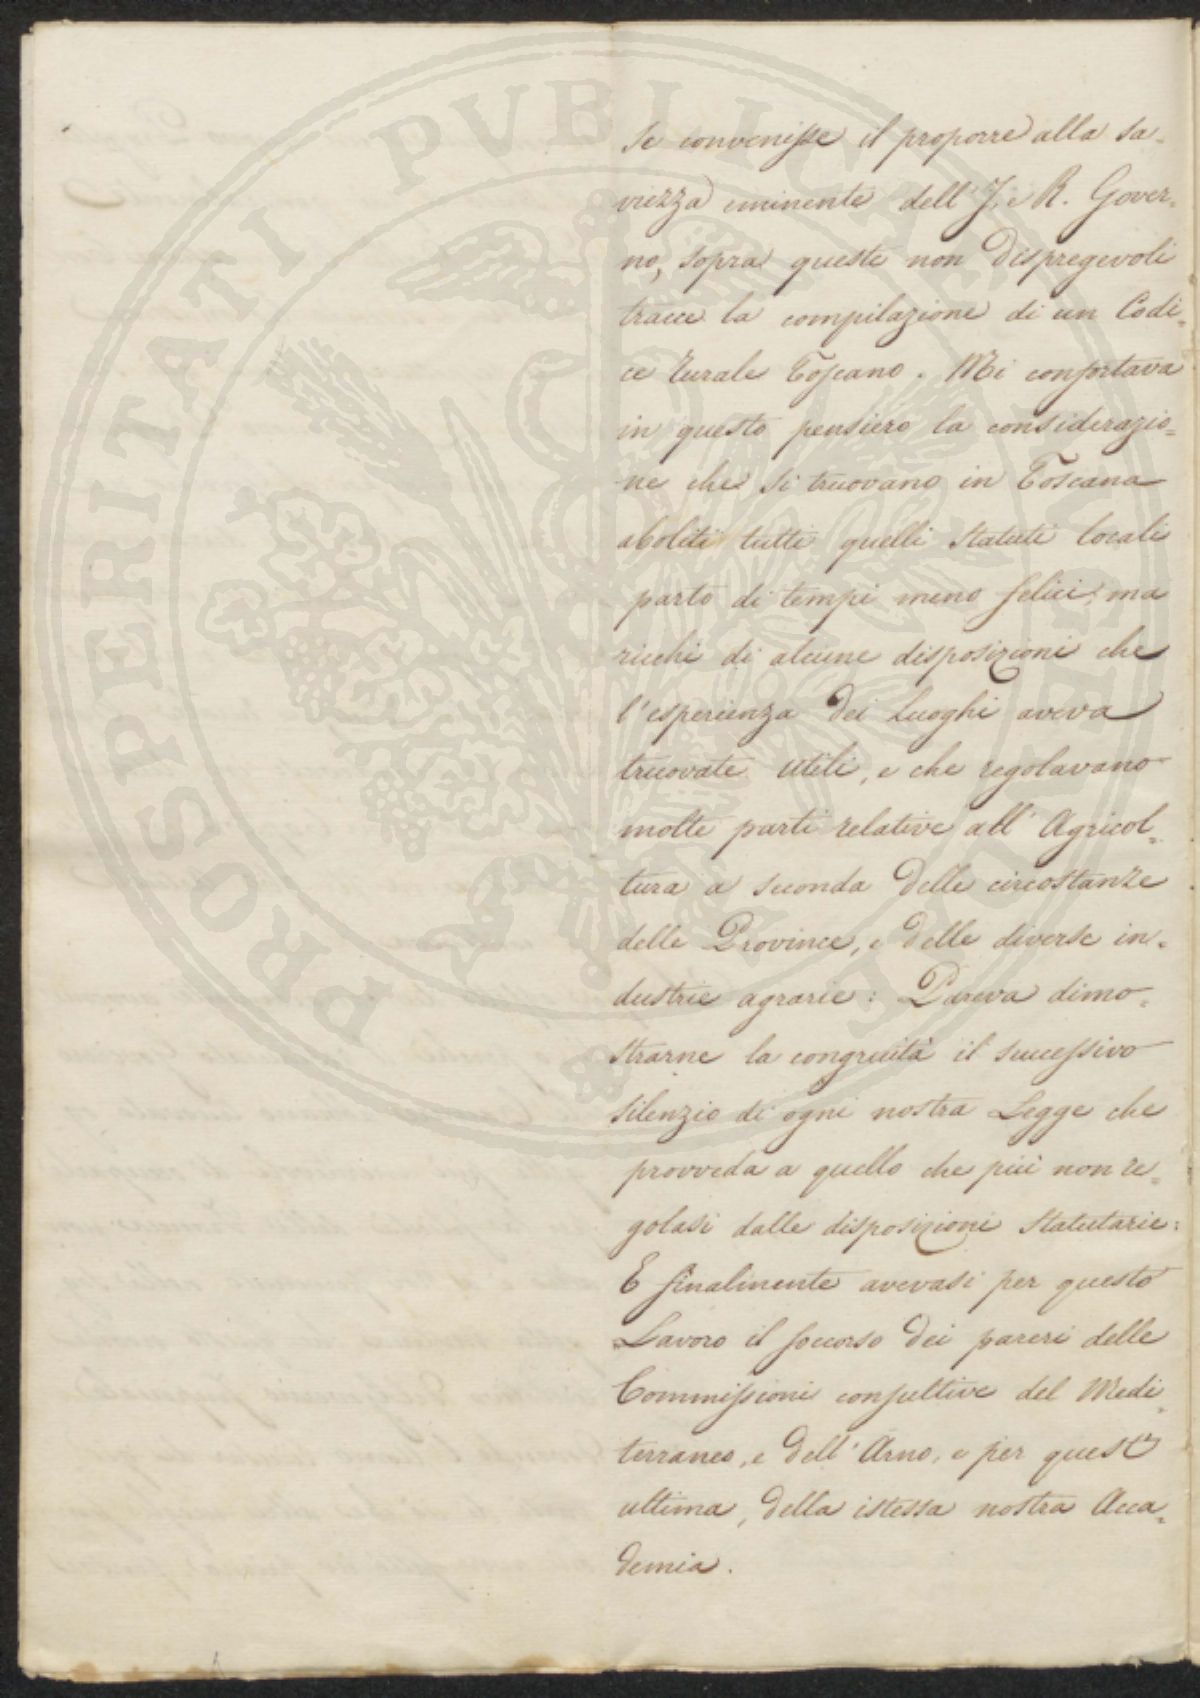 se convenisse il proporre alla sa-
viezza eminente dell'I. e R. Gover-
no, sopra queste non dispregevoli
tracce la compilazione di un Codi-
ce rurale Toscano. Mi confortava
in questo pensiero la considerazio-
ne che si truovano in Toscana
aboliti tutti quelli statuti locali
parto di tempi meno felici, ma
ricchi di alcune disposizioni che
l'esperienza dei Luoghi aveva
truovate utili, e che regolavano
molte parti relative all'Agricol-
tura a seconda delle circostanze
delle Province, e delle diverse in-
dustrie agrarie: Pareva dimo-
strarne la congruità il successivo
silenzio di ogni nostra Legge che
provveda a quello che più non re-
golasi dalle disposizioni Statutarie:
E finalmente avevasi per questo
Lavoro il soccorso dei pareri delle
Commissioni consultive del Medi-
terraneo, e dell'Arno, e per quest'
ultima, della istessa nostra Acca-
demia.
PROSPERITATI PVBLICAE AVGENDAE